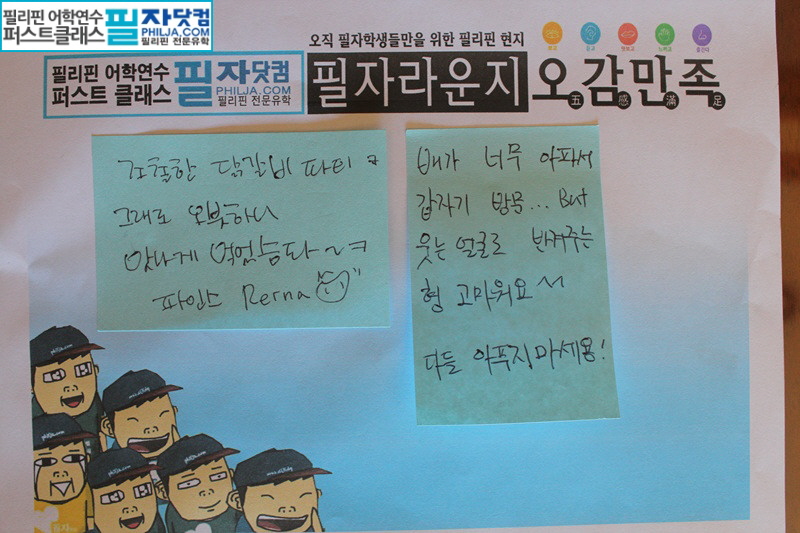 필리핀 어학연수
퍼스트클래스
필자닷컴
PHILJA.COM
필리핀 전문유학
오직 필자학생들만을 위한 필리핀 현지
필리핀 어학연수
퍼스트 클래스
필자닷컴
PHILJA.COM
필리핀 전문유학
필자라운지
오감만족
五感滿足
조촐한 닭갈비 파티ㅋ
그래도 오붓하니
맛나게 먹었슴돠~ㅋ
파인스 Rerna
배가 너무 아파서
갑자기 방문... But
웃는 얼굴로 반겨주는
형 고마워요~
다들 아푸지마세용!